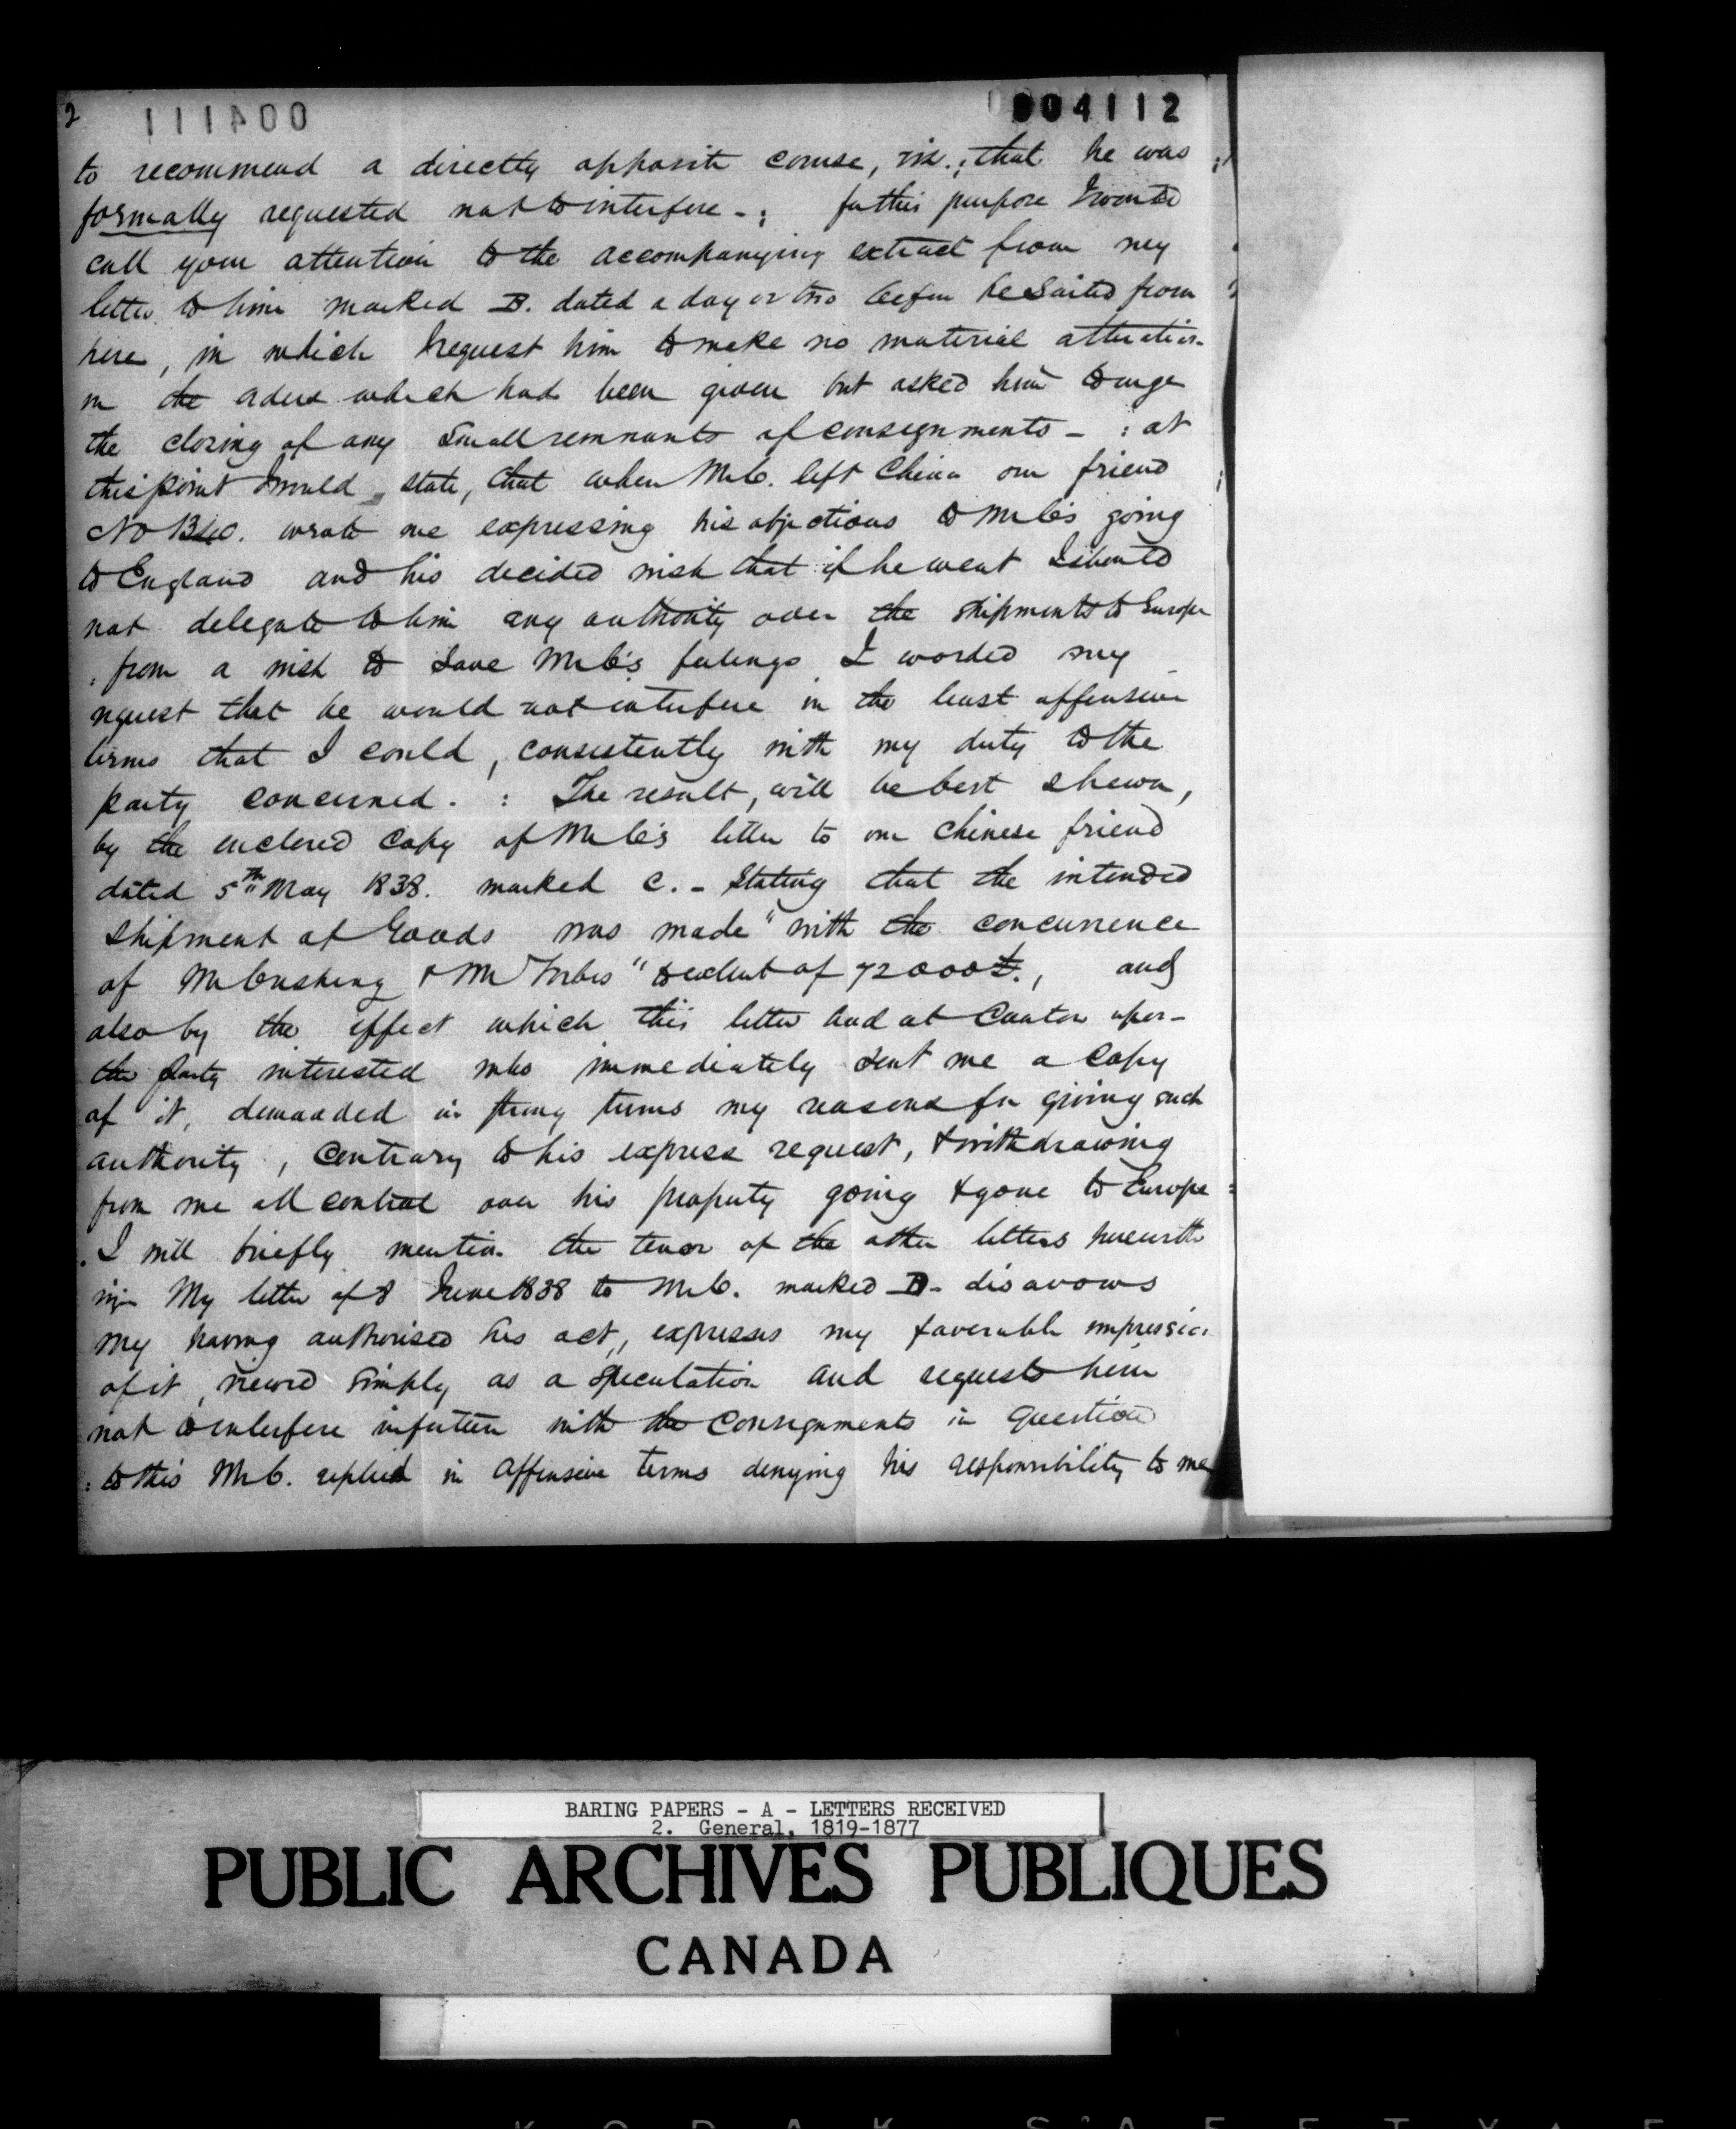 2
004112
to recommend a directly opposite course, viz.; that he was
formally requested not to interfere -: for this purpose I would
call your attention to the accompanying extract from my
letter to him marked B. dated a day or two before he sailed from
here, in which I request him to make no material alteration
in the orders which had been given but asked him to urge
the closing of any small remnants of consignments - : at
this point I would state, that when Mr C. left China our friend
wrote me expressing his objections to Mr C's going
to England and his decided wish that if he went I should
not delegate to him any authority over the shipments to Europe
: from a wish to save Mr C's feelings I worded my
request that he would not interfere in the least offensive
terms that I could, consistently with my duty to the
party concerned. : The result, will be best shewn,
by the enclosed copy of Mr C's letter to our Chinese friend
dated 5th May 1838. marked C. - Stating that the intended
shipment of Goods was made "with the concurrence
of Mr Cushing & Mr Forbes" to extent of 72000£., and
also by the effect which this letter had at Canton upon
the party interested who immediately sent me a copy
of it, demanded in strong terms my reasons for giving such
authority, contrary to his express request, & withdrawing
from me all control over his property going & gone to Europe :
. I will briefly mention the tenor of the other letters herewith
My letter of 8 June 1838 to Mr C. marked D - disavows
my having authorised his act, expresses my favorable impression
of it, viewed simply as a speculation and requests him
not to interfere in future with the consignments in question
: to this Mr C. replied in offensive terms denying his responsibility to me
BARING PAPERS - A - LETTERS RECEIVED
2. General, 1819-1877
PUBLIC ARCHIVES PUBLIQUES
CANADA